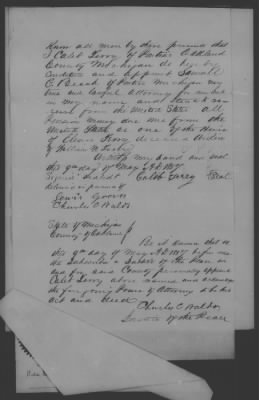 Know all men by these presents that
I Caleb Terry of Pontiac Oakland
County Michigan do hereby
constitute and appoint Samuel
C. Beach of Pontiac Michigan my
true and lawful Attorney for me and
in my name and
from the United States all
money due me from the
United States as one of the Heirs
of
Witness my hand and seal
this 9th day of May A.D. 1847
Signed Sealed & Caleb Terry Seal
delivered in presence of
Lewis
Charles C Waldo
State of Michigan
County of Oakland
Be it known that on
the 9th day of May A.D. 1847 before me
the Subscriber a Justice of the Peace in
and for said County personally appeared
Caleb Terry above named and acknowledged
the foregoing Power of Attorney to be his
act and deed
Charles C Waldo
Justice of the Peace